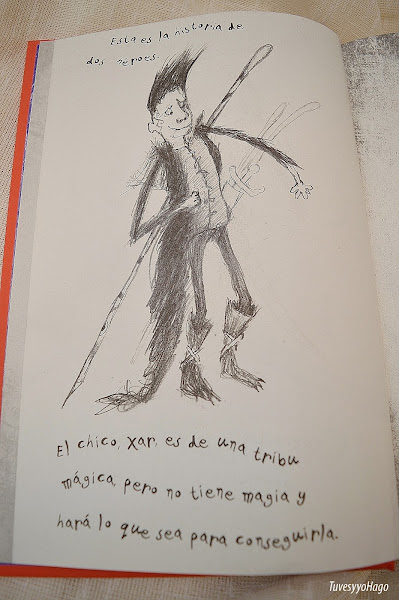 Esta es la historia de
dos héroes.
El chico, Xar, es de una tribu
mágica, pero no tiene magia y
hará lo que sea para conseguirla.
TuvesyyoHago